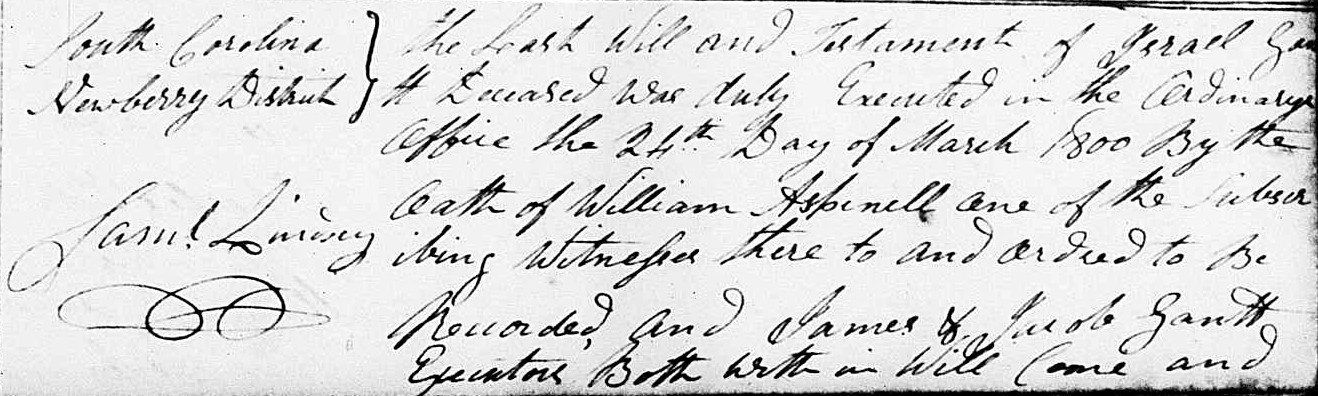 South Carolina
Newberry District
the Last Will and Testament of Israel Gan
tt Deceased was duly Executed in the Ordinarys
Office the 24th Day of March 1800 By the
Oath of William Aspinell one of the Subscr
ibing Witnesses there to and ordred to Be
Recorded, and James & Jacob Gantt
Executors Both with in Will Came and
Saml. Lindsey